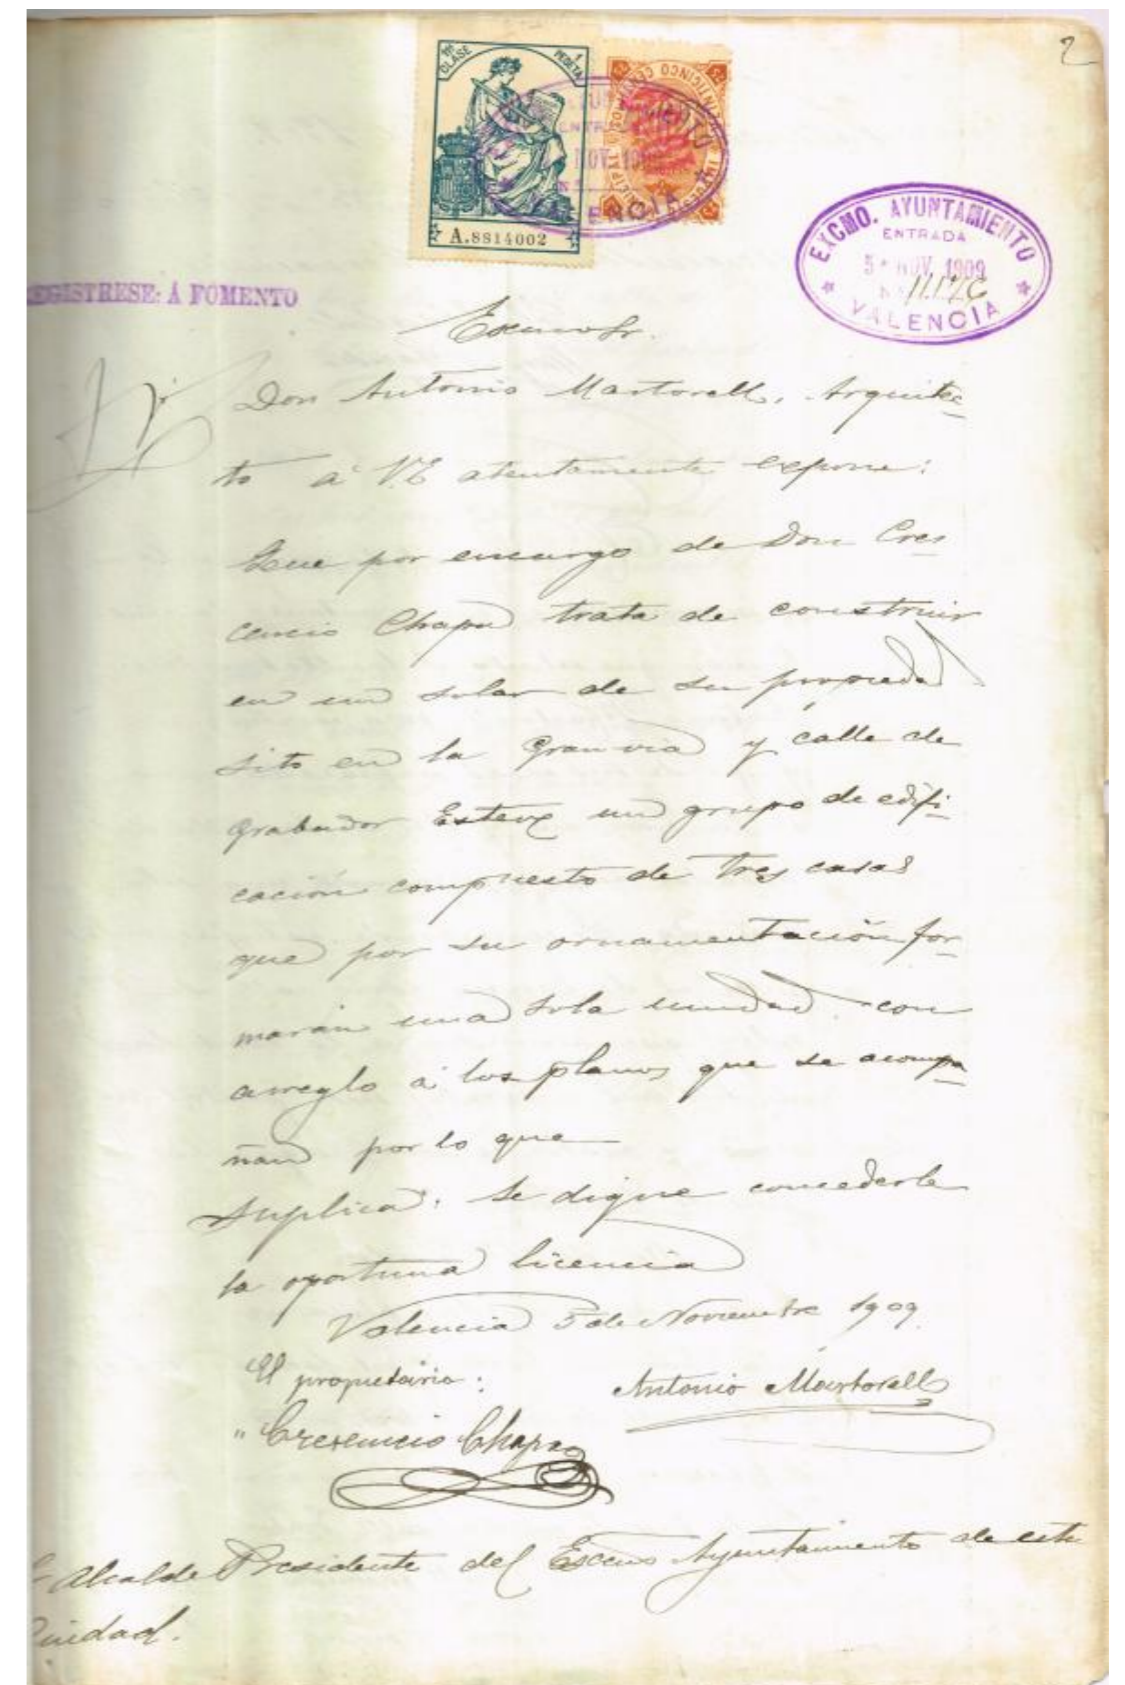 2
11ª CLASE 1 PESETA
A.8814002
VEINTICINCO CENTIMOS
EXCMO. AYUNTAMIENTO
ENTRADA
5 NOV. 1909
VALENCIA
REGISTRESE: Á FOMENTO
Excmo Sr.
Don Antonio Martorell, Arquitec-
to á V.E atentamente expone:
Que por encargo de Don Cres
cencio Chapa trata de construir
en un solar de su propiedad
sito en la Gran via y calle de
Grabador Esteve un grupo de edifi-
cación compuesto de tres casas
que por su ornamentación for-
marán una sola unidad con
arreglo á los planos que se acompa-
ñan por lo que
Suplica: Se digne concederle
la oportuna licencia
Valencia 5 de Noviembre 1909
El propietario: Antonio Martorell
"Cresencio Chapa
Alcalde Presidente del Excmo Ayuntamiento de esta
Ciudad.